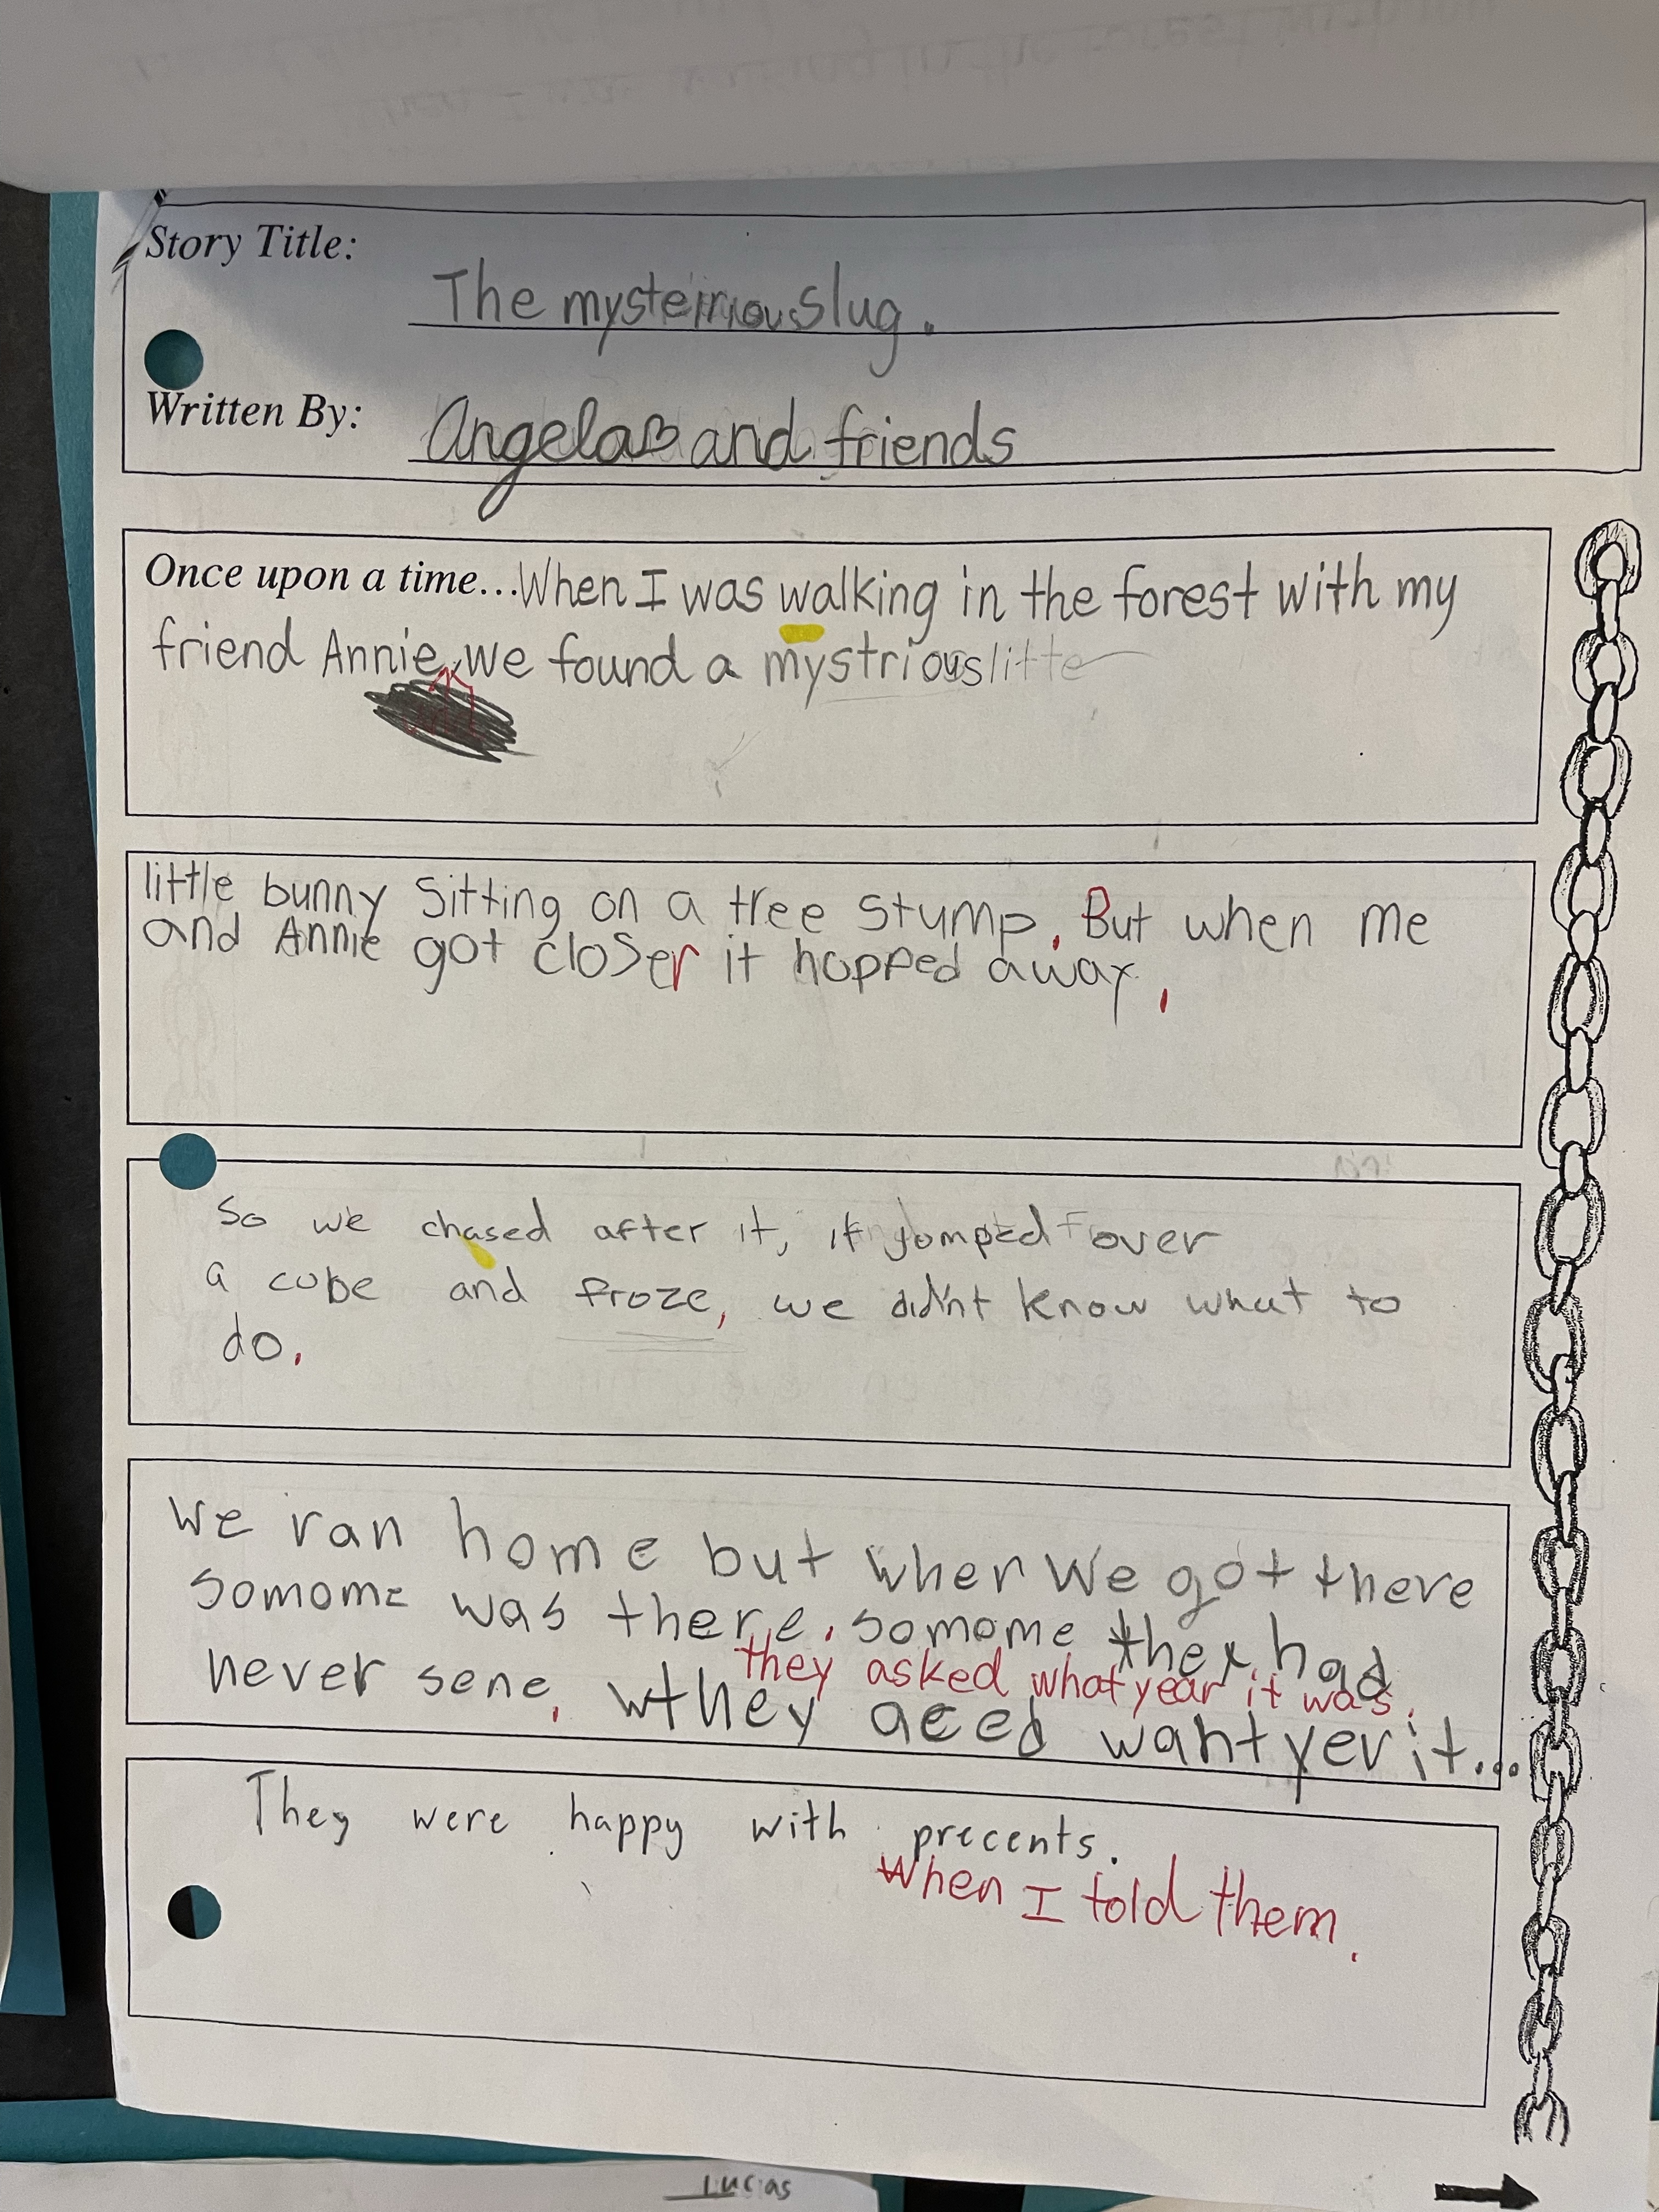 Story Title:
The mysteirious slug.
Written By:
Angela and friends
Once upon a time... When I was walking in the forest with my
friend Annie, we found a mystrious litte
little bunny sitting on a tree stump. But when me
and Annie got closer it hopped away.
So we chased after it, it jomped over
a cube and froze, we didn't know what to
do.
We ran home but when we got there
somome was there. somome they had
never sene.
they asked what year it was.
they aced waht yer it...
They were happy with precents.
When I told them.
Lucias